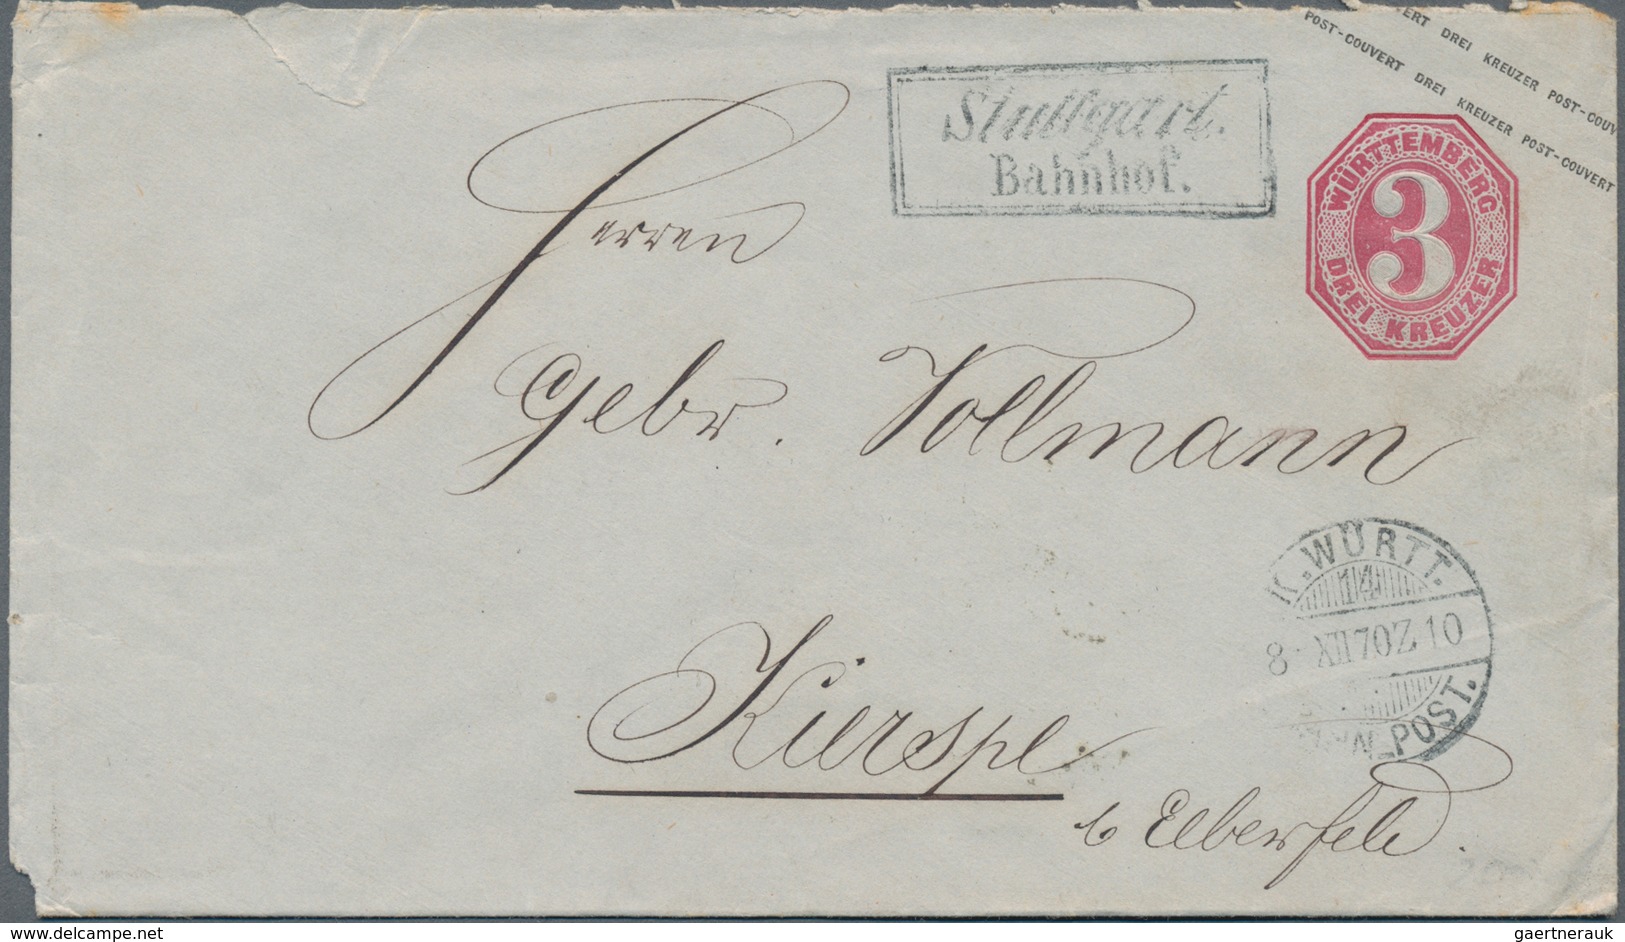 ERT DREI KREUZER POST-COUV
POST-COUVERT DREI KREUZER POST-COUVERT
Stuttgart.
Bahnhof.
WÜRTTEMBERG
3
DREI KREUZER
Herren
Gebr. Vollmann
K. WÜRTT.
14
8. XII 70 Z 10
POST.
Kierspe
b Elberfeld.
www.delcampe.net
gaertnerauk